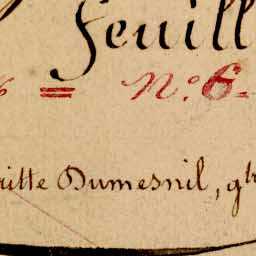 feuill
= N.° 6.
ritte Dumesnil, g